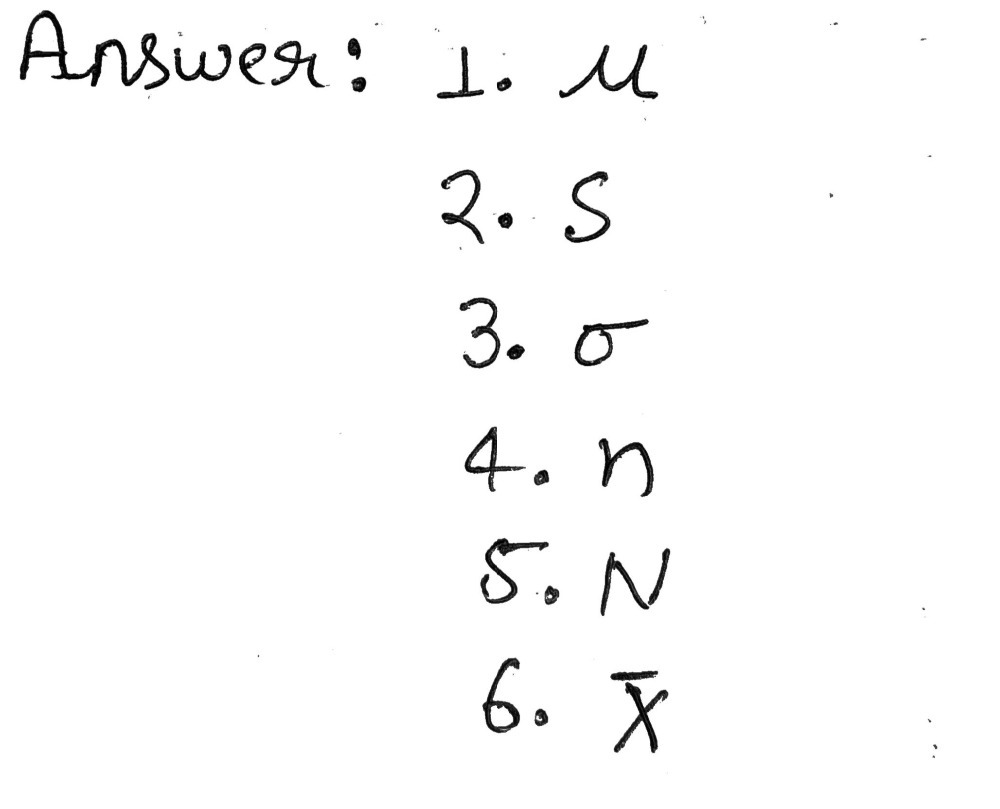 Answer: 1. μ
2. S
3. σ
4. n
5. N
6. X̄